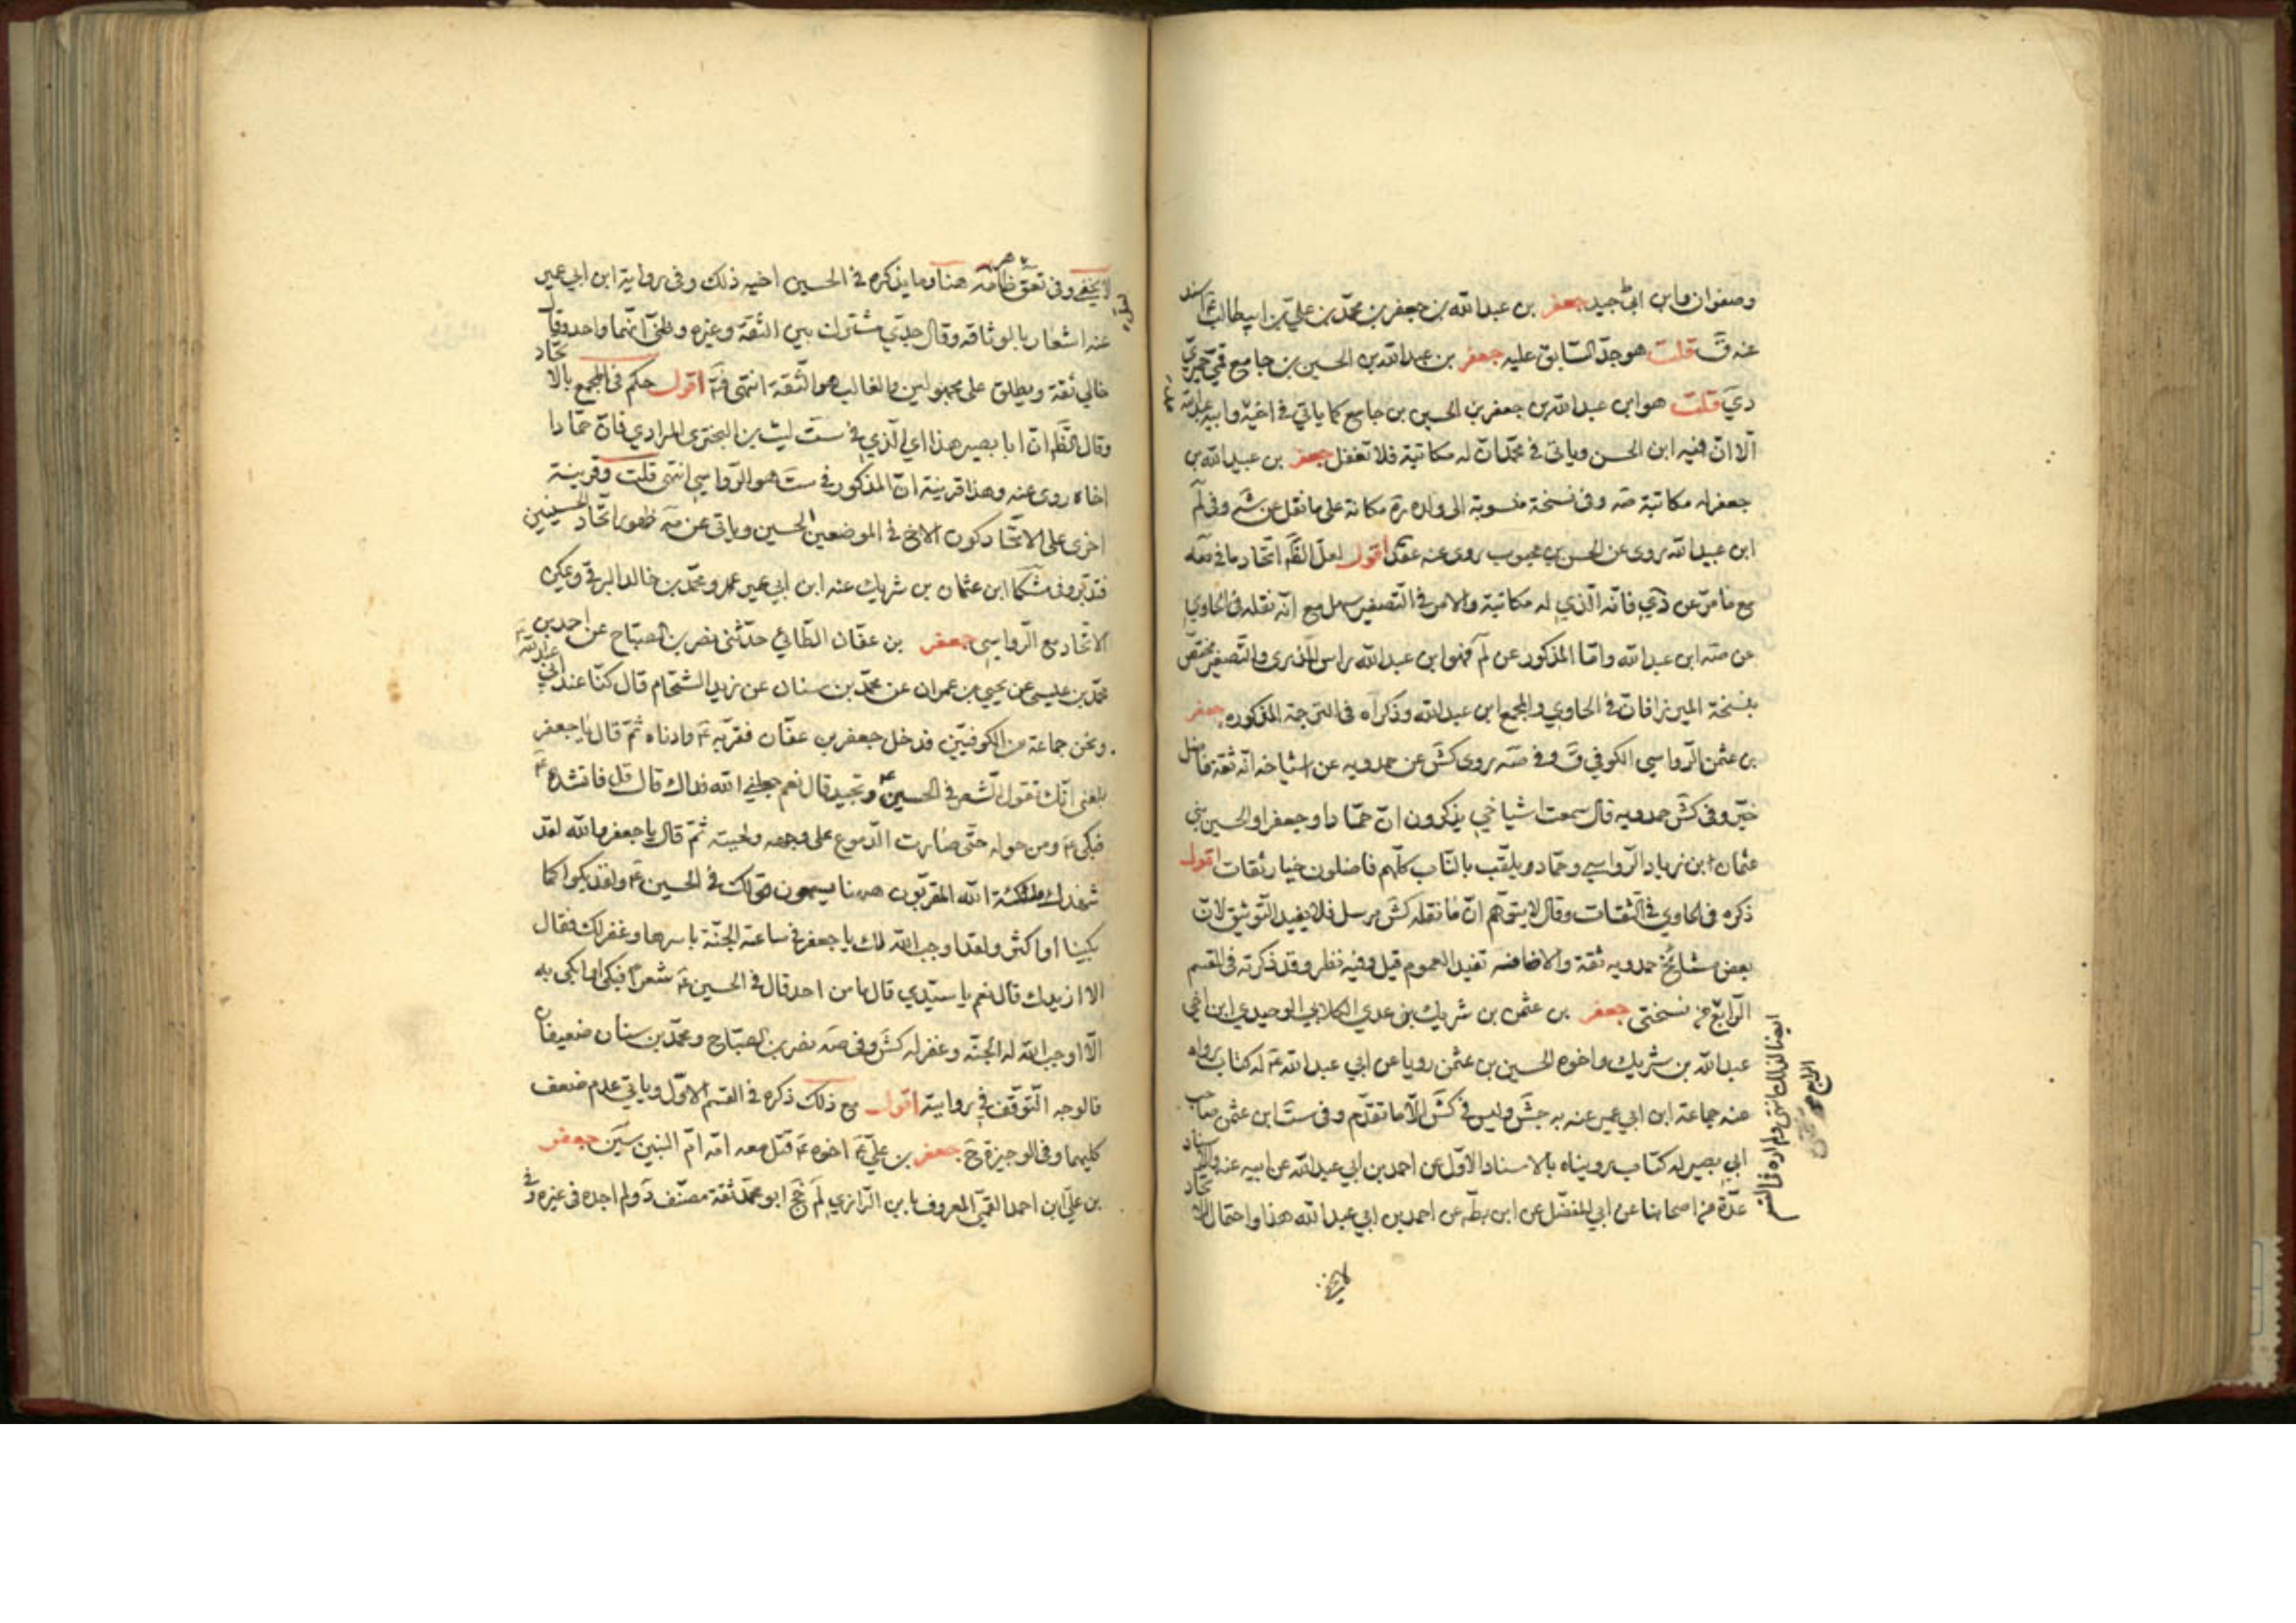 وصفوان وابن ابي جيد جعفر بن عبدالله بن جعفر بن محمد بن علي بن ابيطالب ع اسند
عنه ق قلت هو جد السابق عليه جعفر بن عبدالله بن الحسين بن جامع قمي حميري
دي قلت هو ابن عبدالله بن جعفر بن الحسين بن جامع كما ياتي في اخيه وابيه عبدالله
الا ان فيه ابن الحسن وياتي في محمد ان له مكاتبة فلا تغفل جعفر بن عبيدالله بن
جعفر له مكاتبة صه وفي نسخة منسوبة الى والده ره مكانة على ما نقل عن شه وفي لم
ابن عبيدالله روى عن الحسن بن محبوب روى عنه عقد اقول لعل الظ اتحاد ما في صه
مع ما مر عن دي فانه الذي له مكاتبة والامر في التصغير سهل مع انه نقله في الحاوي
عن صه ابن عبدالله واما المذكور عن لم فهو ابن عبدالله براس المذري والتصغير مختص
بنسخة الميرزا فان في الحاوي والمجمع ابن عبدالله وذكراه في الترجمة المذكورة جعفر
بن عثمن الرواسي الكوفي ق وفي صه روى كش عن حمدويه عن اشياخه انه ثقة فاضل
خير وفي كش حمدويه قال سمعت اشياخي يذكرون ان حمادا وجعفرا والحسين بني
عثمان ابن زياد الرواسي وحماد ويلقب بالناب كلهم فاضلون خيار ثقات اقول
ذكره في الحاوي في الثقات وقال لا يتوهم ان ما نقله كش مرسل فلا يفيد التوثيق لان
بعض مشائخ حمدويه ثقة والاضافه تفيد العموم قيل وفيه نظر وقد ذكرته في القسم
الرابع من نسختي جعفر بن عثمن بن شريك بن عدي الكلابي الوحيدي ابن اخي
عبدالله بن شريك واخوه الحسين بن عثمن رويا عن ابي عبدالله ع له كتاب رواه
عنه جماعة ابن ابي عمير عنه به جش وليس في كش الا ما تقدم وفي ست ابن عثمن صاحب
ابي بصير له كتاب رويناه بالاسناد الاول عن احمد بن ابي عبدالله عن ابيه عنه والاسناد
عدة من اصحابنا عن ابي المفضل عن ابن بطة عن احمد بن ابي عبدالله هذا واحتمال الاتحاد
ايضا لذلك انتهى ولم اره في القسم
الرابع
لا يخفى وفي تعق ظاهر هنا وما يذكره في الحسين اخيه ذلك وفي رواية ابن ابي عمير
عنه اشعار بالوثاقه وقال جدي مشترك بين الثقة وغيره وظني انهما واحد وقال
خالي ثقة ويطلق على مجهولين والغالب هو الثقة انتهى اقول حكم في المجمع بالاتحاد
وقال الظ ان ابا بصير هذا اي الذي في ست ليث بن البختري المرادي فان حمادا
اخاه روى عنه وهذا قرينة ان المذكور في ست هو الرواسي انتهى قلت وقرينة
اخرى على الاتحاد كون الاخ في الموضعين الحسين وياتي عن صه ظهور اتحاد الحسينين
فتدبر وفي مشكا ابن عثمان بن شريك عنه ابن ابي عمير ومحمد بن خالد البرقي وعكى
الاتحاد مع الرواسي جعفر بن عفان الطائي حدثني نصر بن الصباح عن احمد بن
محمد بن عيسى عن يحيى بن عمران عن محمد بن سنان عن زيد الشحام قال كنا عند ابي عبدالله ع
ونحن جماعة من الكوفيين فدخل جعفر بن عفان فقربه ع وادناه ثم قال يا جعفر
بلغني انك تقول الشعر في الحسين ع وتجيد قال نعم جعلني الله فداك قال قل فانشده
فبكى ع ومن حوله حتى صارت الدموع على وجهه ولحيته ثم قال يا جعفر والله لقد
شهدك ملائكة الله المقربون ههنا يسمعون قولك في الحسين ع ولقد بكوا كما
بكينا او اكثر ولقد اوجب الله لك يا جعفر في ساعته الجنة باسرها وغفر لك فقال
الا ازيدك قال نعم يا سيدي قال ما من احد قال في الحسين ع شعرا فبكى وابكى به
الا اوجب الله له الجنه وغفر له كش وفي صه نصر بن الصباح ومحمد بن سنان ضعيفان
فالوجه التوقف في روايته اقول مع ذلك ذكره في القسم الاول وياتي عدم ضعف
كليهما وفي الوجيزة ح جعفر بن علي ع اخوه ع قتل معه امه ام البنين سين جعفر
بن علي ابن احمد القمي المعروف بابن الرازي لم جخ ابو محمد ثقة مصنف د ولم اجده في غيره وفي